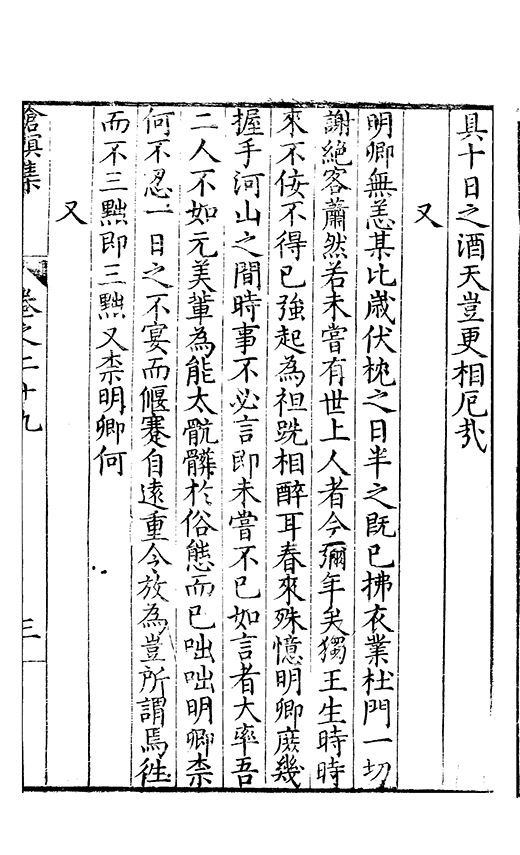 具十日之酒天豈更相厄哉
又
明卿無恙某比歲伏枕之日半之既已拂衣業杜門一切
謝絶客蕭然若未嘗有世上人者今彌年矣獨王生時時
來不佞不得已強起為袒跣相醉耳春來殊憶明卿庶幾
握手河山之間時事不必言即未嘗不已如言者大率吾
二人不如元美輩為能太骯髒於俗態而已咄咄明卿柰
何不忍一日之不宴而偃蹇自遠重令放為豈所謂焉徃
而不三黜即三黜又柰明卿何
又
滄溟集
卷之二十九
三